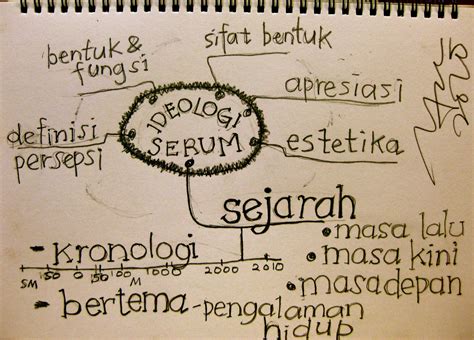 bentuk &
fungsi
sifat bentuk
apresiasi
definisi
persepsi
IDEOLOGI
SERUM
estetika
sejarah
• masa lalu
• masa kini
• masadepan
- kronologi
SM 150 0 50 100 M 1000 2000 2010
- bertema - pengalaman
hidup
2010